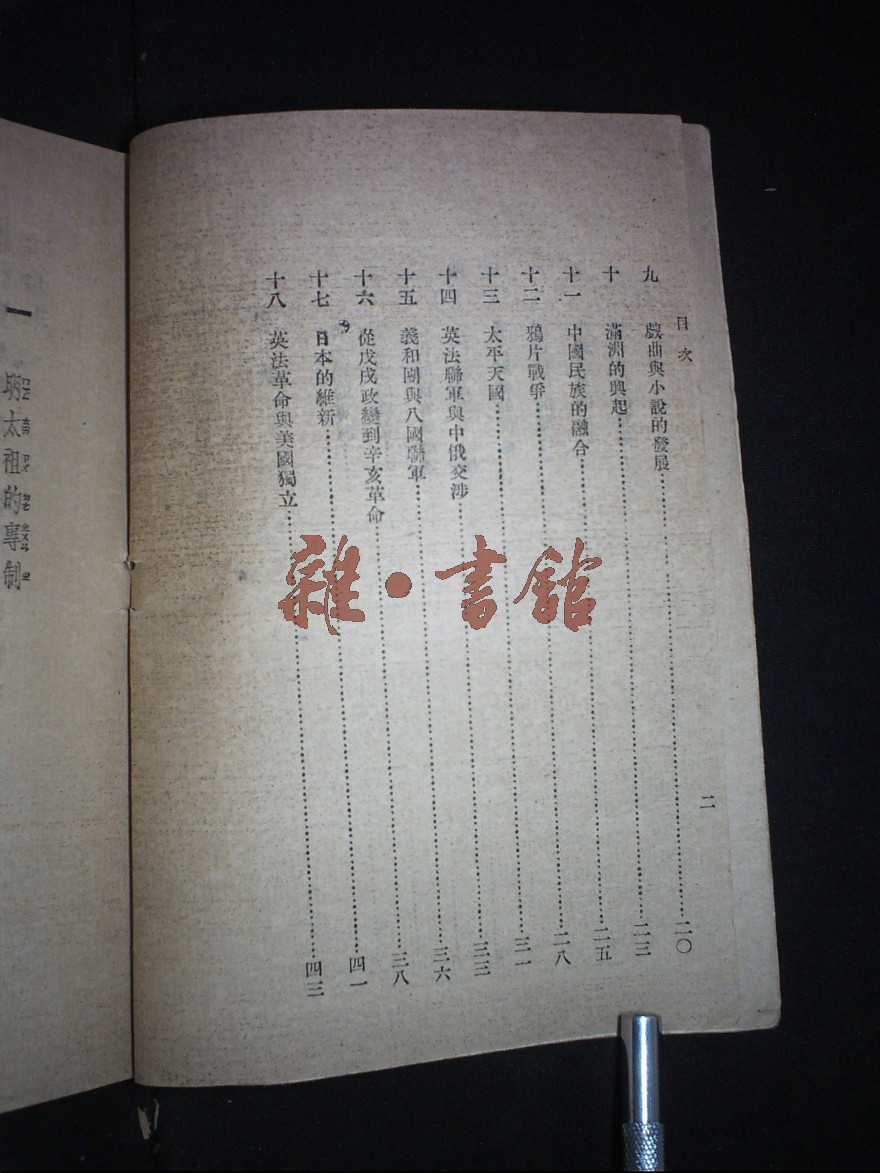 目次
二
九 戲曲與小說的發展……二〇
十 滿洲的興起……二三
十一 中國民族的融合……二五
十二 鴉片戰爭……二八
十三 太平天國……三一
十四 英法聯軍與中俄交涉……三三
十五 義和團與八國聯軍……三六
十六 從戊戌政變到辛亥革命……三八
十七 日本的維新……四一
十八 英法革命與美國獨立……四三
一 明太祖的專制
雜·書館